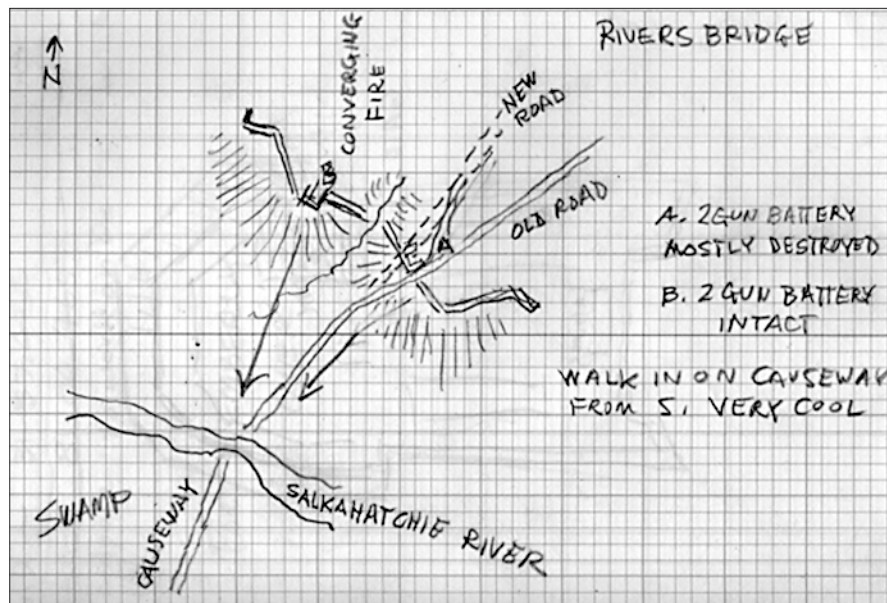 RIVERS BRIDGE
N
CONVERGING
FIRE
NEW
ROAD
OLD ROAD
B
A
A. 2 GUN BATTERY
MOSTLY DESTROYED
B. 2 GUN BATTERY
INTACT
WALK IN ON CAUSEWAY
FROM S. VERY COOL
SWAMP
CAUSEWAY
SALKAHATCHIE RIVER